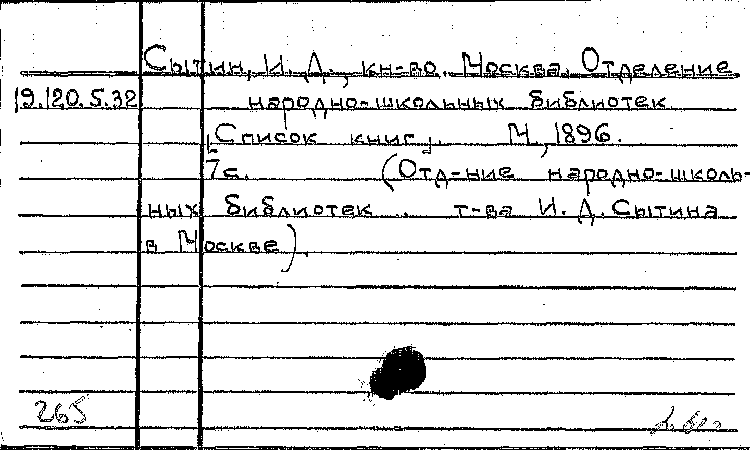 Сытин, И. Д., кн-во. Москва. Отделение
19.120.5.32 народно-школьных библиотек
[Список книг]. М., 1896.
7с. (Отд-ние народно-школь-
ных библиотек т-ва И. Д. Сытина
в Москве).
265